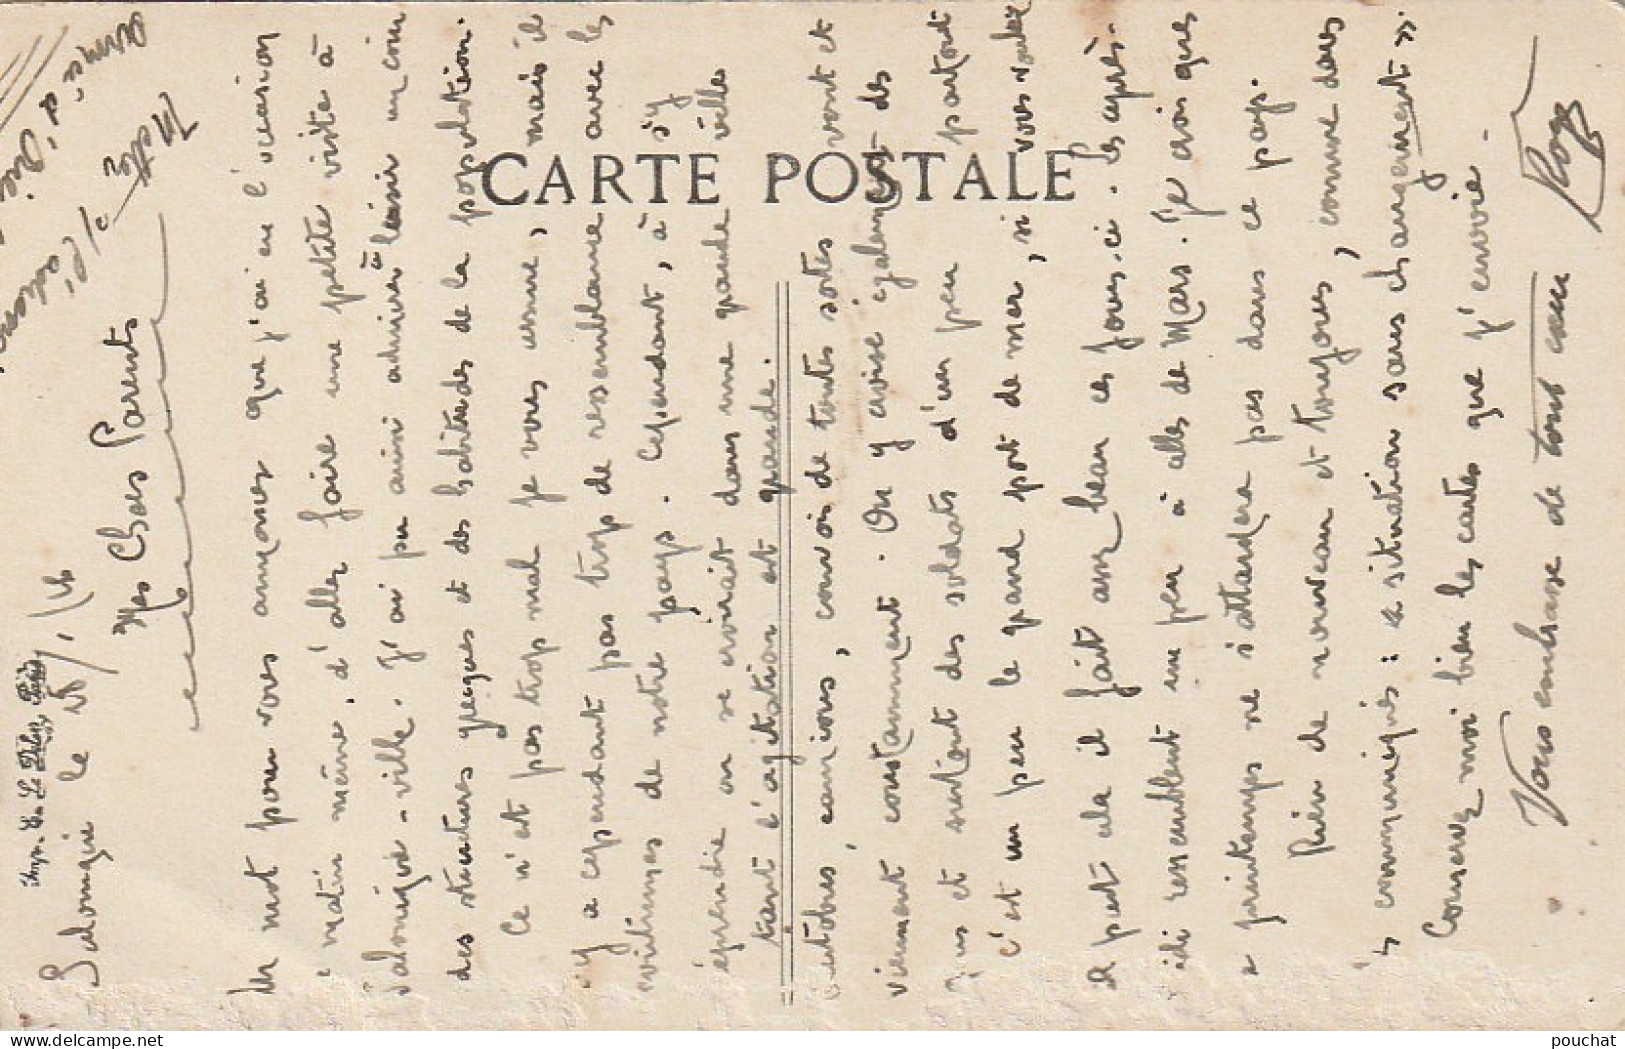 CARTE POSTALE
Salonique le
Mes Chers Parents
Un mot pour vous annoncer que j'ai eu l'occasion
ce matin même, d'aller faire une petite visite à
Salonique-ville. J'ai pu ainsi admirer à loisir un coin
des structures grecques et des habitudes de la population.
Ce n'est pas trop mal je vous assure, mais il
n'y a cependant pas trop de ressemblance avec les
coutumes de notre pays. Cependant, à s'y
méprendre on se croirait dans une grande ville
tant l'agitation est grande.
Autobus, camions, convois de toutes sortes vont et
viennent constamment. On y croise également des
et surtout des soldats d'un peu partout
C'est un peu le grand port de mer, si vous voulez
A part cela il fait assez beau ces jours-ci. les après-
midi ressemblent un peu à celles de Mars. Je crois que
le printemps ne s'attardera pas dans ce pays.
Rien de nouveau et toujours, comme dans
les communiqués : « situation sans changement »
Conservez moi bien les cartes que j'envoie.
Vous embrasse de tout cœur
Roger
Mettez
l'adresse
armée d'Orient
pouchat